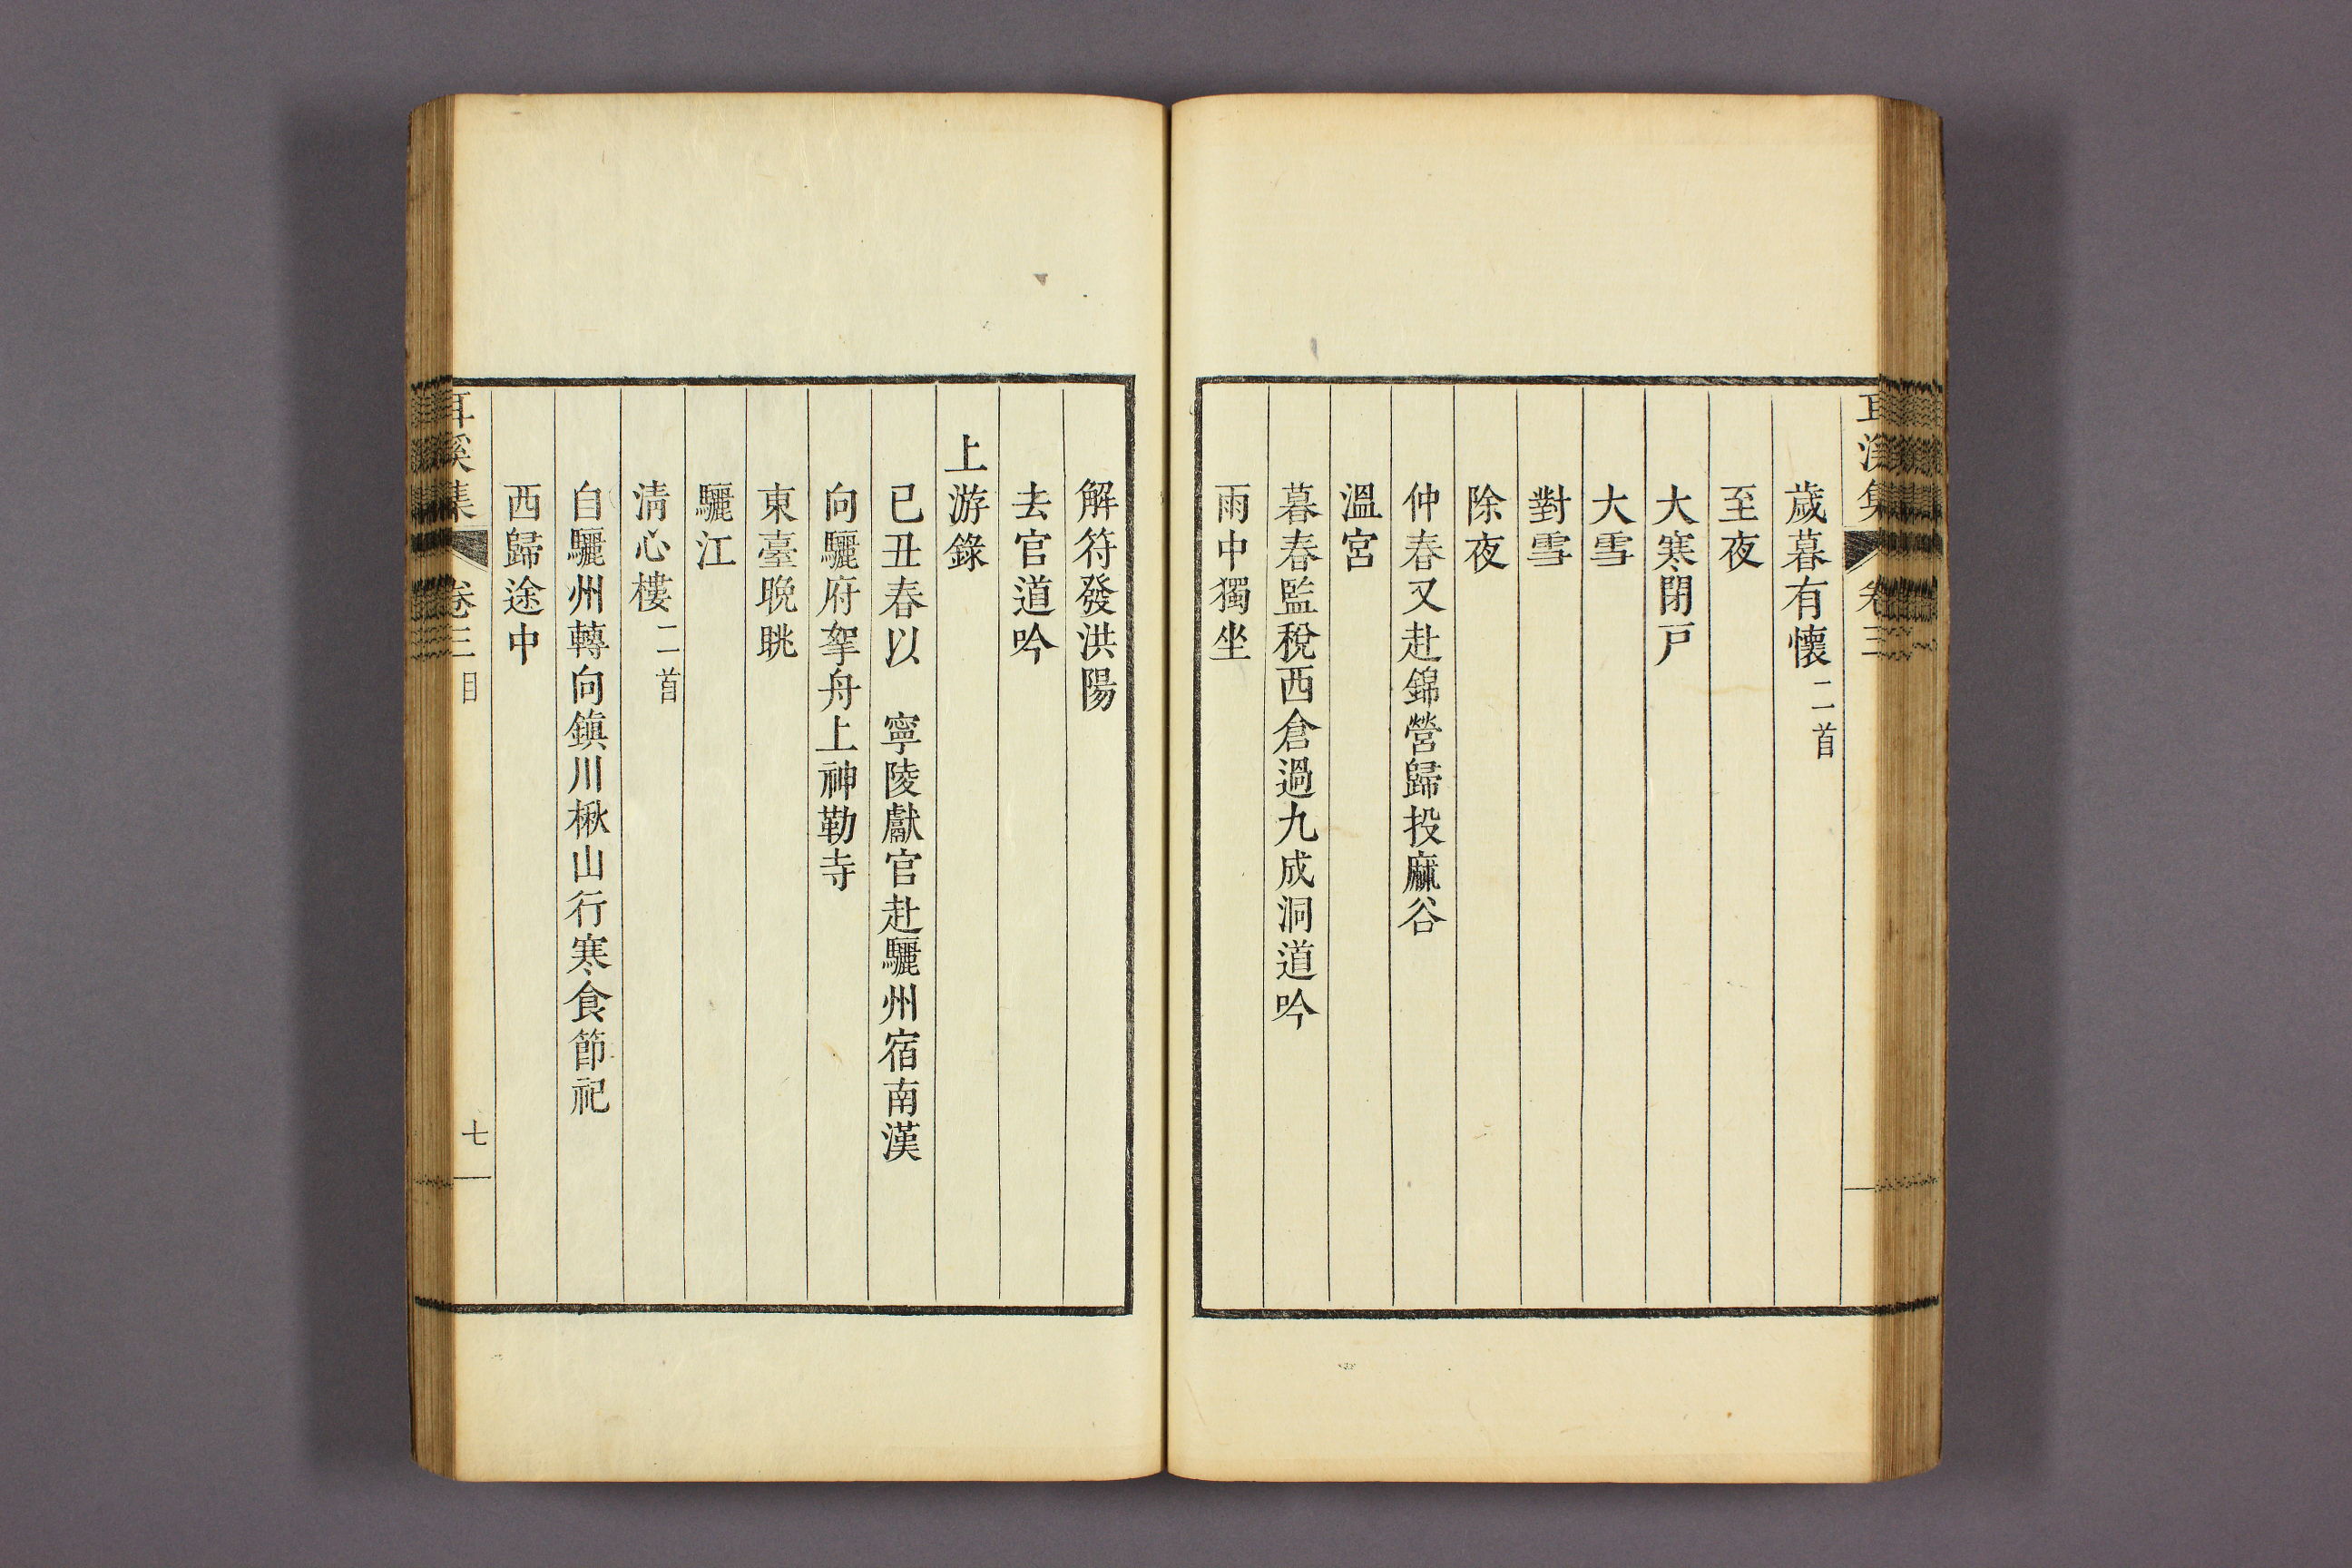 耳溪集 卷三
歲暮有懷 二首
至夜
大寒閉戸
大雪
對雪
除夜
仲春又赴錦營歸投麻谷
溫宮
暮春監稅西倉過九成洞道吟
雨中獨坐
解符發洪陽
去官道吟
上游錄
已丑春以 寧陵獻官赴驪州宿南漢
向驪府挐舟上神勒寺
東臺晩眺
驪江
淸心樓 二首
自驪州轉向鎭川楸山行寒食節祀
西歸途中
耳溪集 卷三 目 七